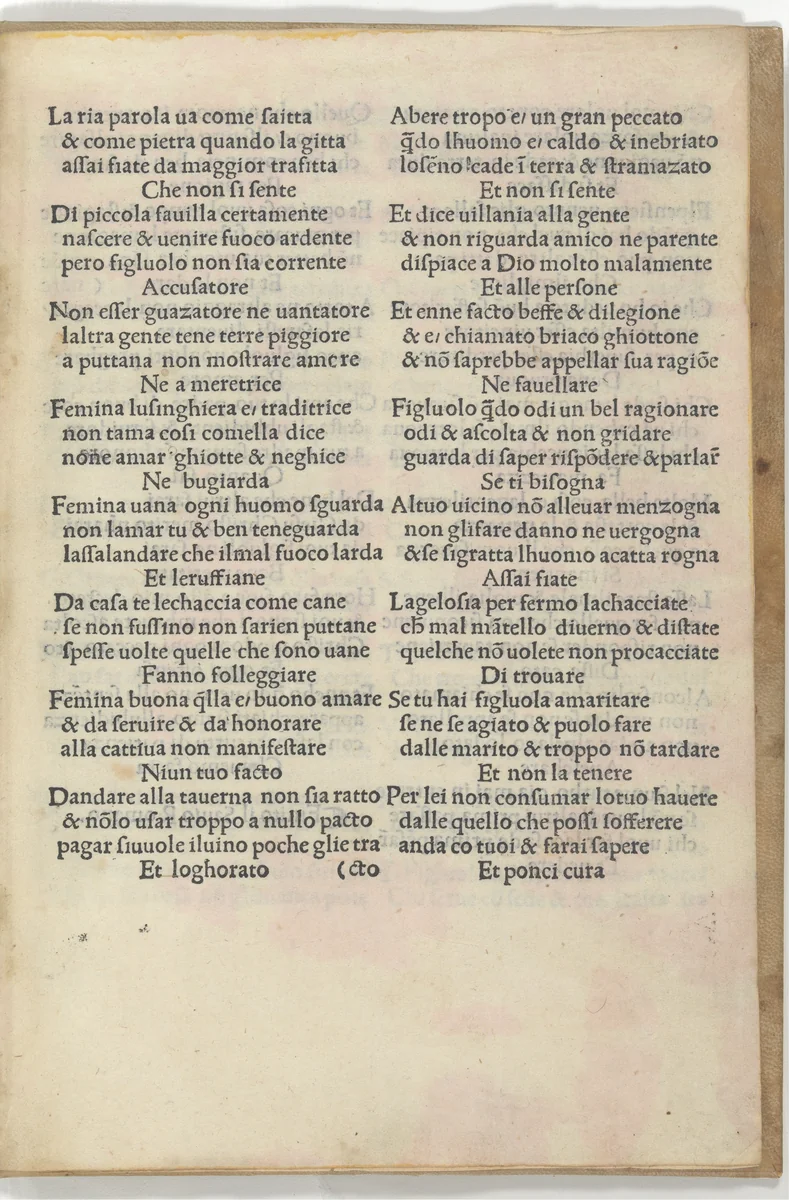 La ria parola ua come ſaitta
& come pietra quando la gitta
aſſai fiate da maggior trafitta
Che non ſi ſente
Di piccola fauilla certamente
naſcere & uenire fuoco ardente
pero figluolo non ſia corrente
Accuſatore
Non eſſer guazatore ne uantatore
laltra gente tene terre piggiore
a puttana non moſtrare amore
Ne a meretrice
Femina luſinghiera e/ traditrice
non tama coſi comella dice
nōne amar ghiotte & neghice
Ne bugiarda
Femina uana ogni huomo ſguarda
non lamar tu & ben teneguarda
laſſalandare che ilmal fuoco larda
Et leruffiane
Da caſa te lechaccia come cane
ſe non fuſſino non ſarien puttane
ſpeſſe uolte quelle che ſono uane
Fanno folleggiare
Femina buona q̄lla e/ buono amare
& da ſeruire & da honorare
alla cattiua non manifeſtare
Niun tuo facto
Dandare alla tauerna non ſia ratto
& nōlo uſar troppo a nullo pacto
pagar ſiuuole iluino poche glie tra
Et loghorato (cto
Abere tropo e/ un gran peccato
q̄do lhuomo e/ caldo & inebriato
loſēno cade ī terra & ſtramazato
Et non ſi ſente
Et dice uillania alla gente
& non riguarda amico ne parente
diſpiace a Dio molto malamente
Et alle perſone
Et enne facto beffe & dilegione
& e/ chiamato briaco ghiottone
& nō ſaprebbe appellar ſua ragiōe
Ne fauellare
Figluolo q̄do odi un bel ragionare
odi & aſcolta & non gridare
guarda di ſaper riſpōdere &parlar̄
Se ti biſogna
Altuo uicino nō alleuar menzogna
non glifare danno ne uergogna
&ſe ſigratta lhuomo acatta rogna
Aſſai fiate
Lageloſia per fermo lachacciate
ch̄ mal mātello diuerno & diſtate
quelche nō uolete non procacciate
Di trouare
Se tu hai figluola amaritare
ſe ne ſe agiato & puolo fare
dalle marito & troppo nō tardare
Et non la tenere
Per lei non conſumar lotuo hauere
dalle quello che poſſi ſofferere
anda co tuoi & farai ſapere
Et ponci cura